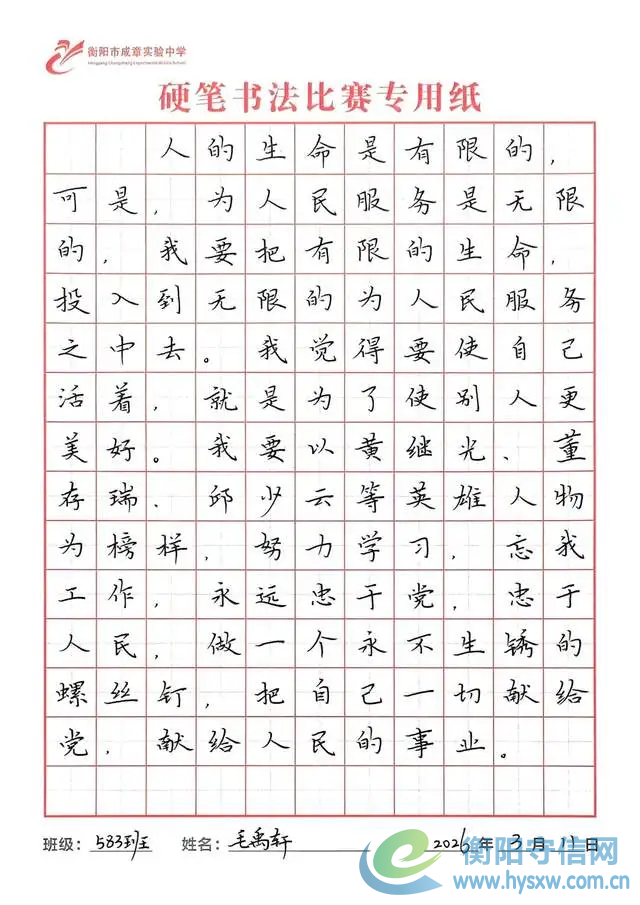 衡阳市成章实验中学
硬笔书法比赛专用纸
人的生命是有限的，
可是，为人民服务是无限
的，我要把有限的生命，
投入到无限的为人民服务
之中去。我觉得要使自己
活着，就是为了使别人更
美好。我要以黄继光、董
存瑞、邱少云等英雄人物
为榜样，努力学习，忘我
工作，永远忠于党，忠于
人民，做一个永不生锈的
螺丝钉，把自己一切献给
党，献给人民的事业。
班级：583班 姓名：毛禹轩 2026年3月11日
衡阳守信网
www.hysxw.com.cn